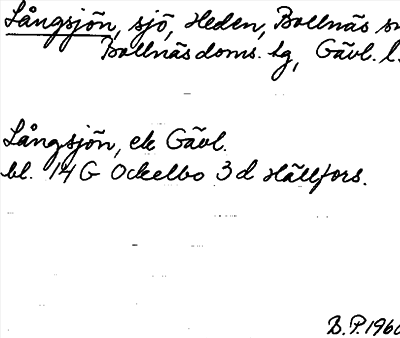 Långsjön, sjö, Heden, Bollnäs sn
Bollnäs doms. tg, Gävl. l.
Långsjön, ek Gävl.
bl. 14 G Ockelbo 3 d Hällfors.
B.P. 1960